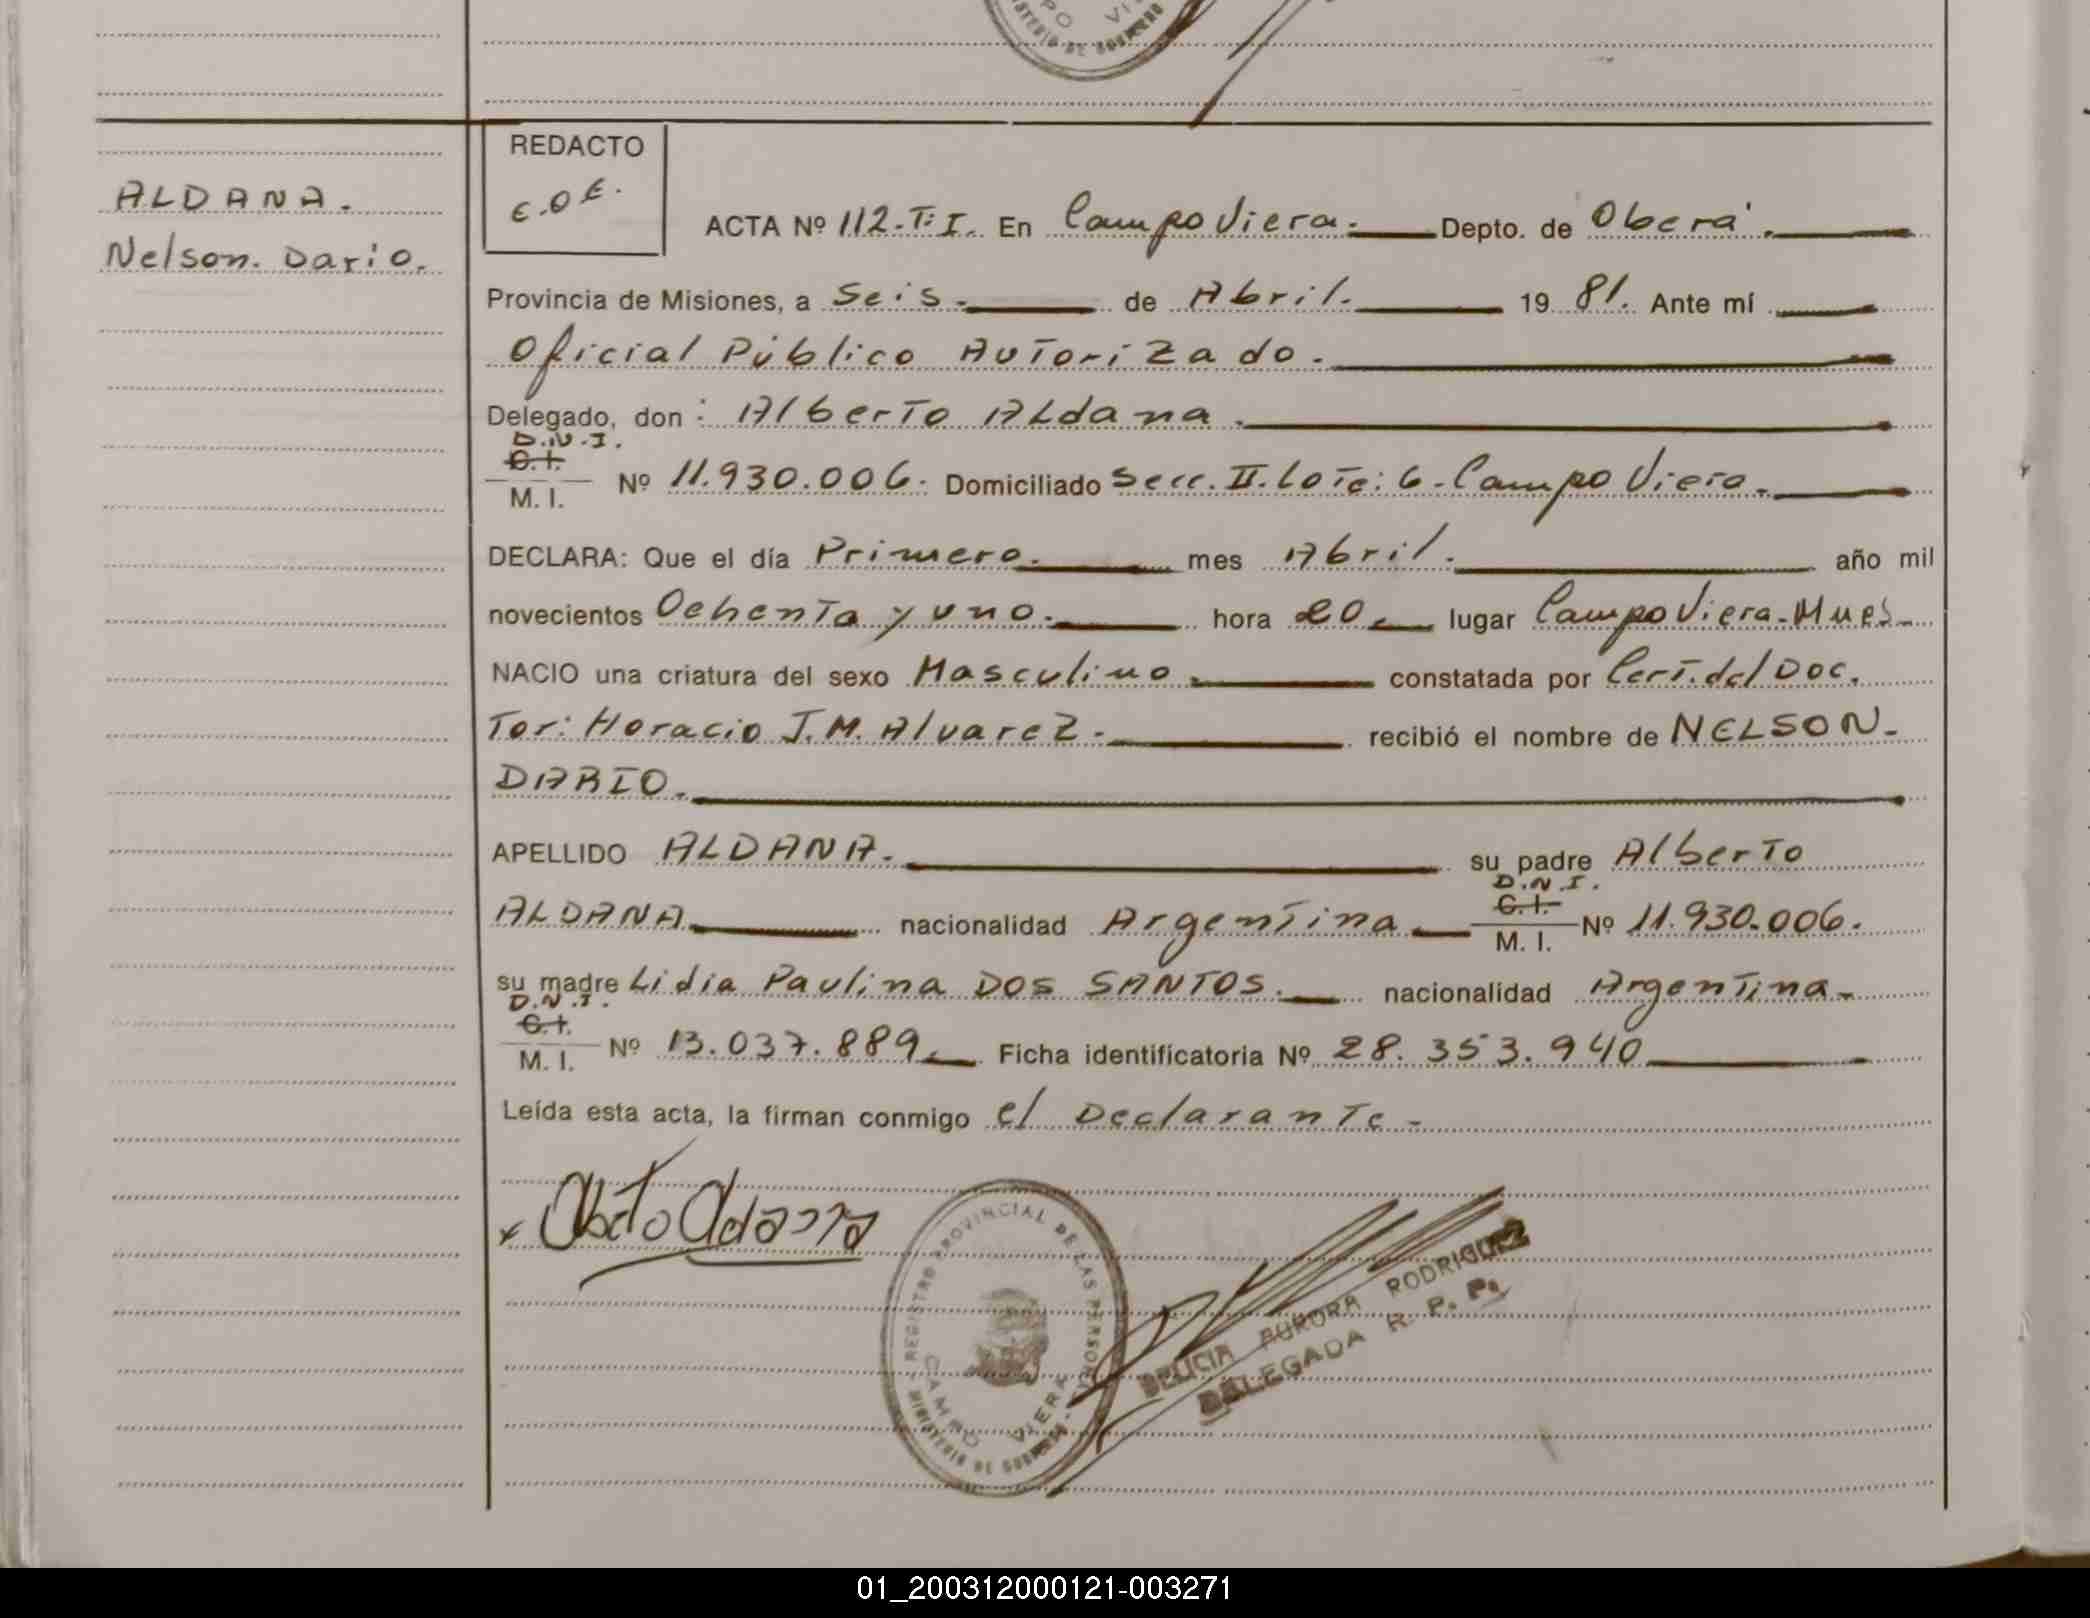 ALDANA.
Nelson. Dario.
REDACTO
E.O.E.
ACTA Nº 112.T.I. En Campo Viera. Depto. de Oberá.
Provincia de Misiones, a Seis. de Abril. 1981. Ante mí
Oficial Público Autorizado.
Delegado, don: Alberto Aldana.
D.N.I.
C.I.
M. I.
Nº 11.930.006. Domiciliado Secc. II. Lote: 6. Campo Viera.
DECLARA: Que el día Primero. mes Abril. año mil
novecientos Ochenta y uno. hora 20. lugar Campo Viera. Mues.
NACIO una criatura del sexo Masculino. constatada por Cert. del Doc.
Tor: Horacio J.M. Alvarez. recibió el nombre de NELSON.
DARIO.
APELLIDO ALDANA. su padre Alberto
D.N.I.
C.I.
M. I.
ALDANA nacionalidad Argentina Nº 11.930.006.
su madre Lidia Paulina DOS SANTOS. nacionalidad Argentina.
D.N.I.
C.I.
M. I.
Nº 13.037.889. Ficha identificatoria Nº 28.353.940
Leída esta acta, la firman conmigo el Declarante.
x Alberto Aldana
REGISTRO PROVINCIAL DE LAS PERSONAS
CAMPO VIERA
MINISTERIO DE GOBIERNO
DELICIA AURORA RODRIGUEZ
DELEGADA R. P. P.
01_200312000121-003271